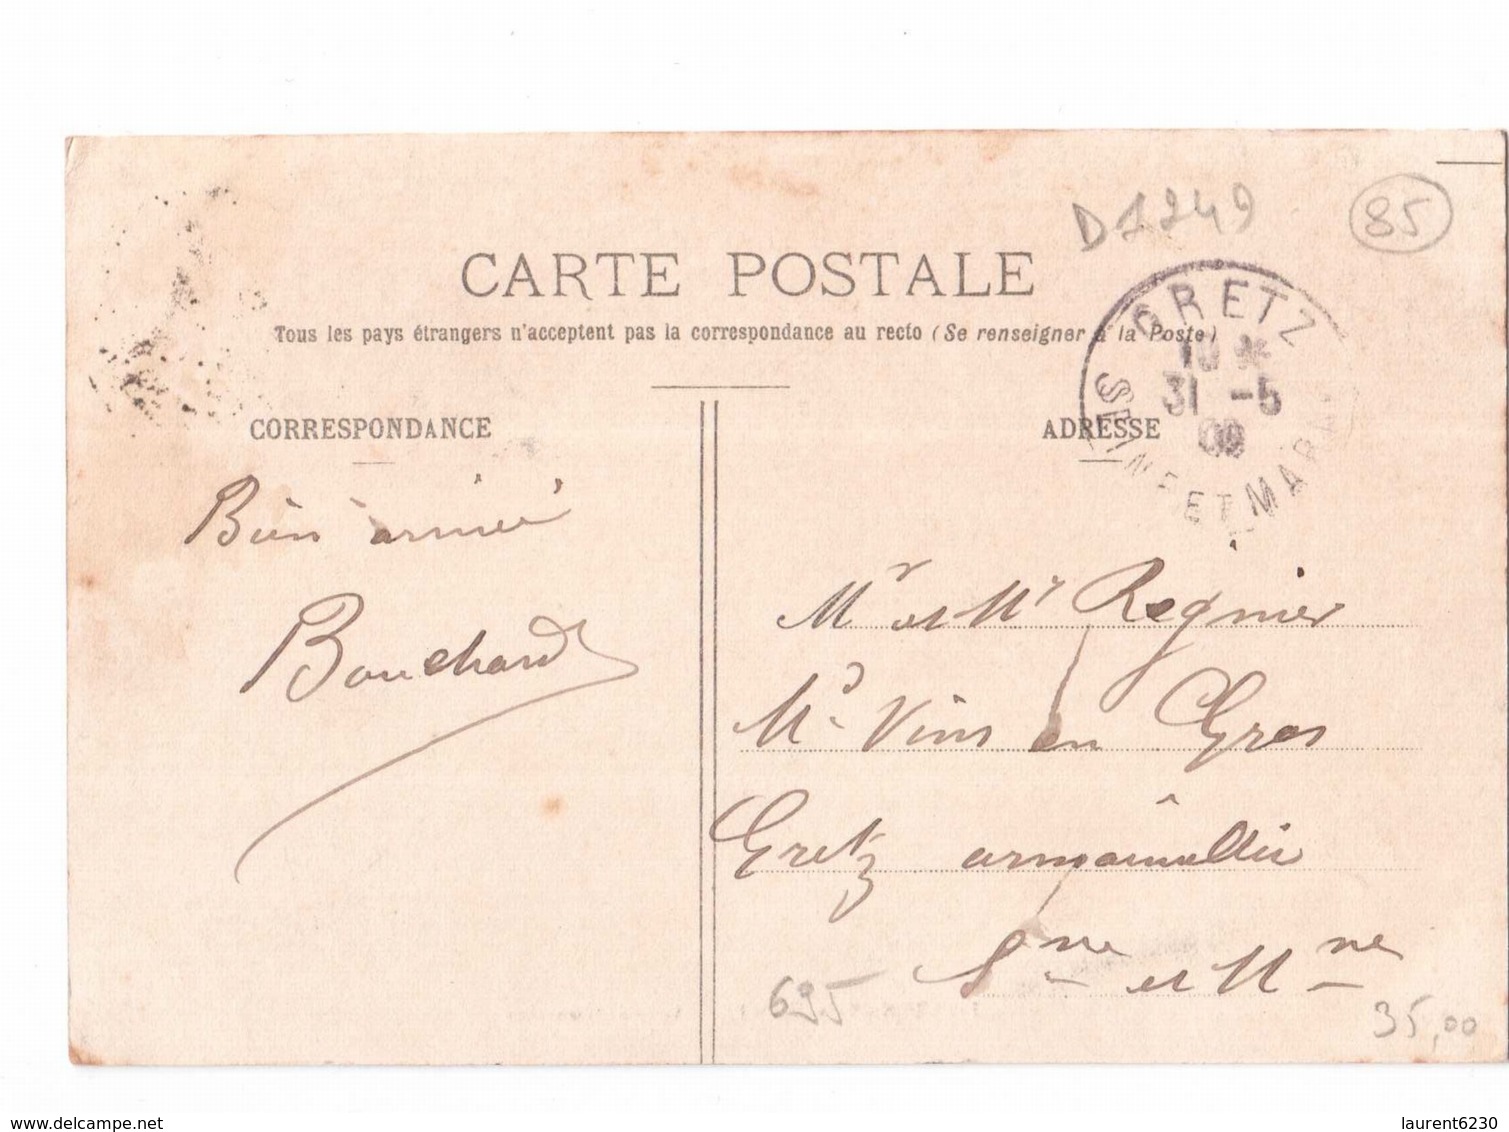 D1249
85
CARTE POSTALE
Tous les pays étrangers n'acceptent pas la correspondance au recto (Se renseigner à la Poste)
GRETZ
31 -5
09
SEINE ET MAR
CORRESPONDANCE
ADRESSE
Bien arrivé
Bouchard
Mr et Mr Regnier
Md Vins en Gros
Gretz armainvillier
Sne et Mne
695
35,00
www.delcampe.net
laurent6230